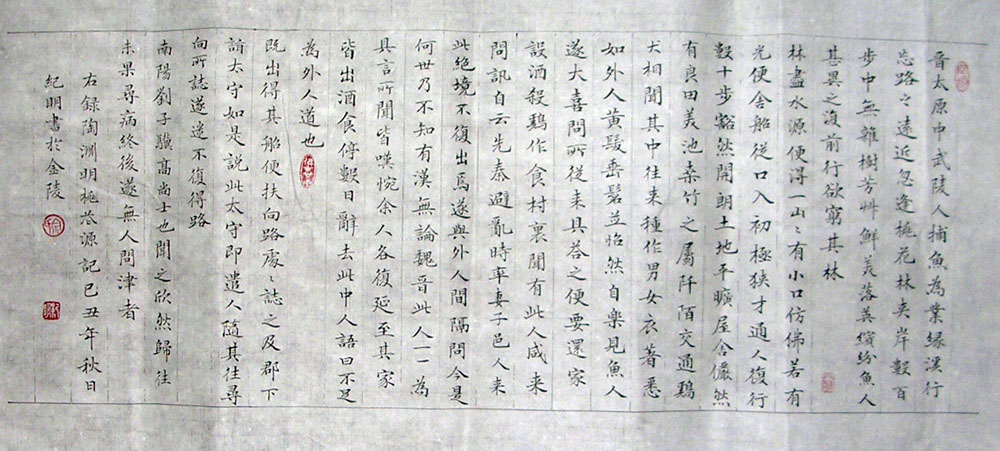 晉太原中武陵人捕魚為業緣溪行
忘路之遠近忽逢桃花林夾岸數百
步中無雜樹芳艸鮮美落英繽紛魚人
甚異之復前行欲窮其林
林盡水源便得一山〻有小口仿佛若有
光便舍船從口入初極狹才通人復行
數十步豁然開朗土地平曠屋舍儼然
有良田美池桑竹之屬阡陌交通鷄
犬相聞其中往来種作男女衣著悉
如外人黃髮垂髫並怡然自樂見魚人
遂大喜問所從来具答之便要還家
設酒殺鷄作食村裏聞有此人咸来
問訊自云先秦避亂時率妻子邑人来
此絕境不復出焉遂與外人間隔問今是
何世乃不知有漢無論魏晉此人一一為
具言所聞皆嘆惋余人各復延至其家
皆出酒食停數日辭去此中人語曰不足
為外人道也
既出得其船便扶向路處〻誌之及郡下
詣太守如是說此太守即遣人隨其往尋
向所誌遂迷不復得路
南陽劉子驥高尚士也聞之欣然歸往
未果尋病終後遂無人問津者
右録陶淵明桃花源記己丑年秋日
紀明書於金陵